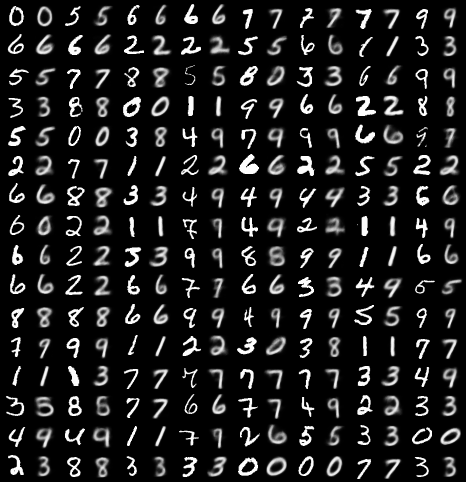 0 0 5 5 6 6 6 6 7 7 7 7 7 7 9 9
6 6 6 6 2 2 2 2 5 5 6 6 1 1 3 3
5 5 7 7 8 8 5 5 8 0 3 3 6 6 9 9
3 3 8 8 0 0 1 1 9 9 6 6 2 2 8 8
5 5 0 0 3 8 4 9 7 9 9 9 6 6 9 7
2 2 7 7 1 1 2 2 6 6 2 2 5 5 2 2
6 6 8 8 3 3 4 9 4 9 4 4 3 3 6 6
0 0 2 2 1 1 7 9 4 9 2 2 1 1 4 9
6 6 2 2 5 3 9 9 8 8 9 9 1 1 6 6
6 6 2 2 6 6 7 7 6 6 3 3 4 9 5 5
8 8 8 8 6 6 9 9 4 9 9 9 5 5 9 9
7 9 9 9 1 1 2 2 3 0 3 8 1 1 7 7
1 1 1 3 7 7 7 7 7 7 7 7 3 3 4 9
3 5 8 5 7 7 6 6 7 7 4 9 2 2 3 3
4 9 4 9 1 1 7 9 2 6 5 5 3 3 0 0
2 3 8 8 3 3 3 3 0 0 0 0 7 7 3 3